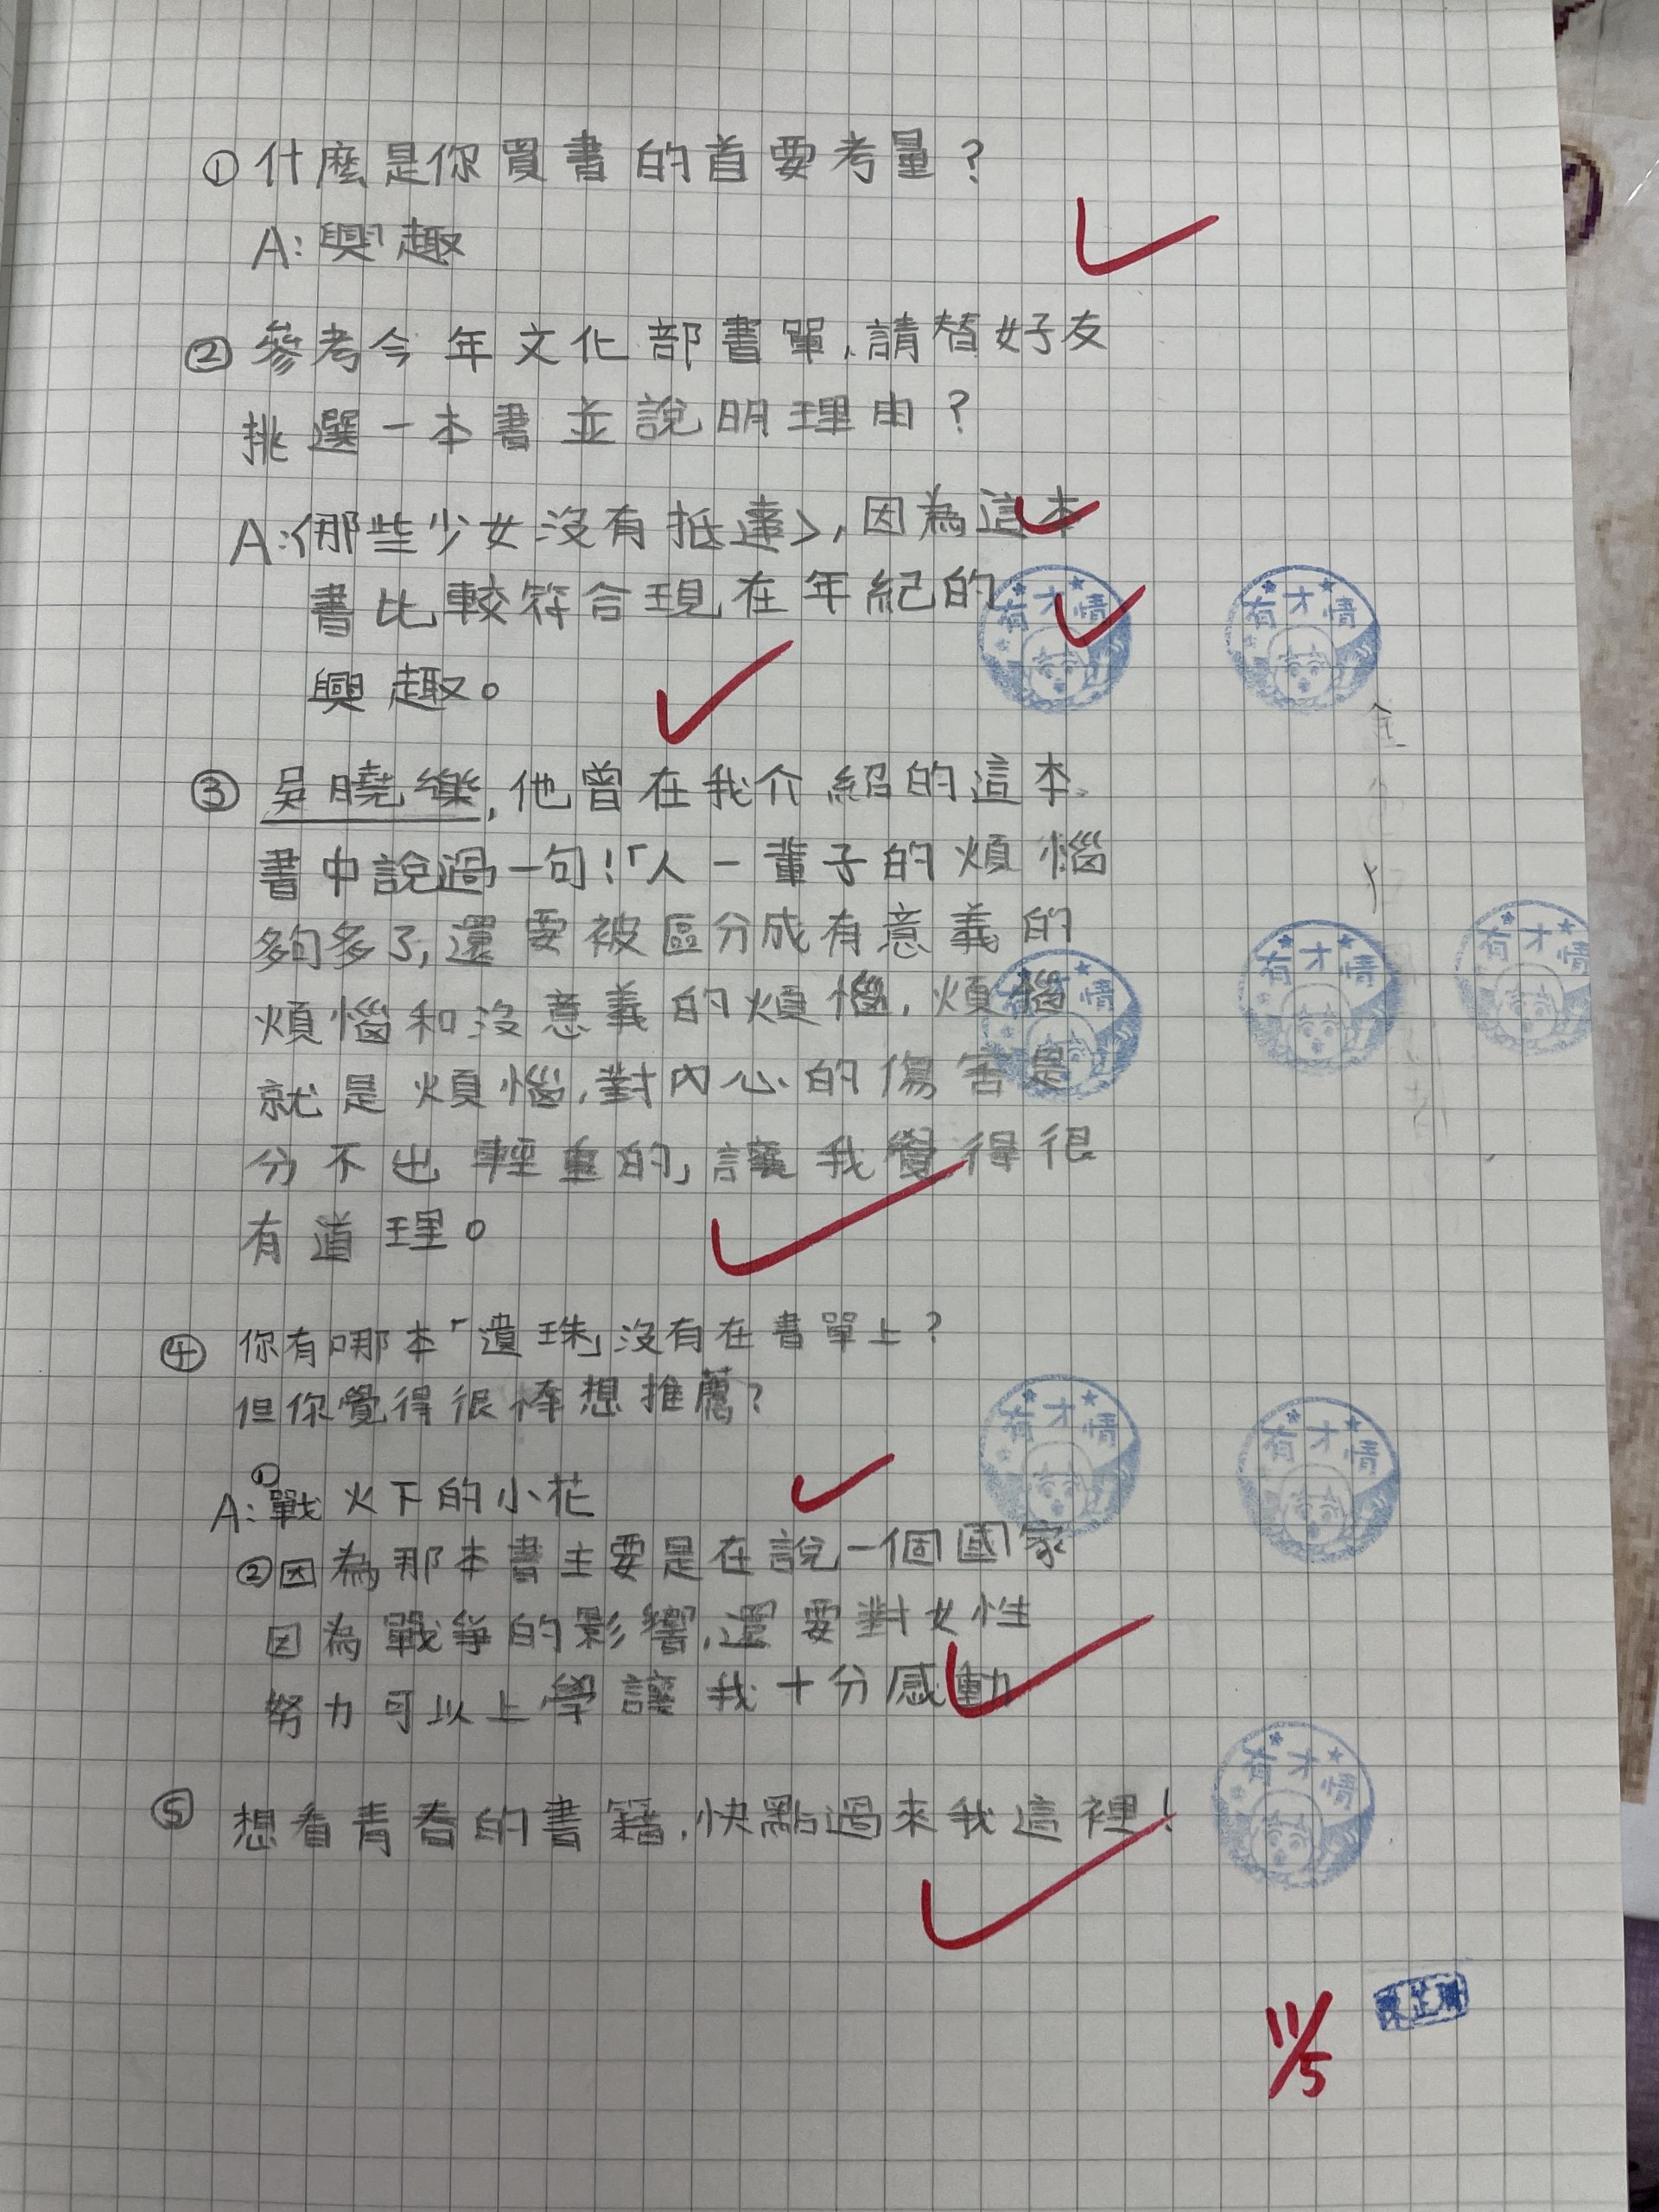 ①什麼是你買書的首要考量?
A:興趣
②參考今年文化部書單,請替好友
挑選一本書並說明理由?
A:〈那些少女沒有抵達〉,因為這本
書比較符合現在年紀的
興趣。
③吳曉樂,他曾在我介紹的這本
書中說過一句!「人一輩子的煩惱
夠多了,還要被區分成有意義的
煩惱和沒意義的煩惱,煩惱
就是煩惱,對內心的傷害是
分不出輕重的」讓我覺得很
有道理。
④你有哪本「遺珠」沒有在書單上?
但你覺得很棒想推薦?
A:①戰火下的小花
②因為那本書主要是在說一個國家
因為戰爭的影響,還要對女性
努力可以上學讓我十分感動
⑤想看青春的書籍,快點過來我這裡!
有才情
有才情
有才情
有才情
有才情
有才情
有才情
有才情
11/5